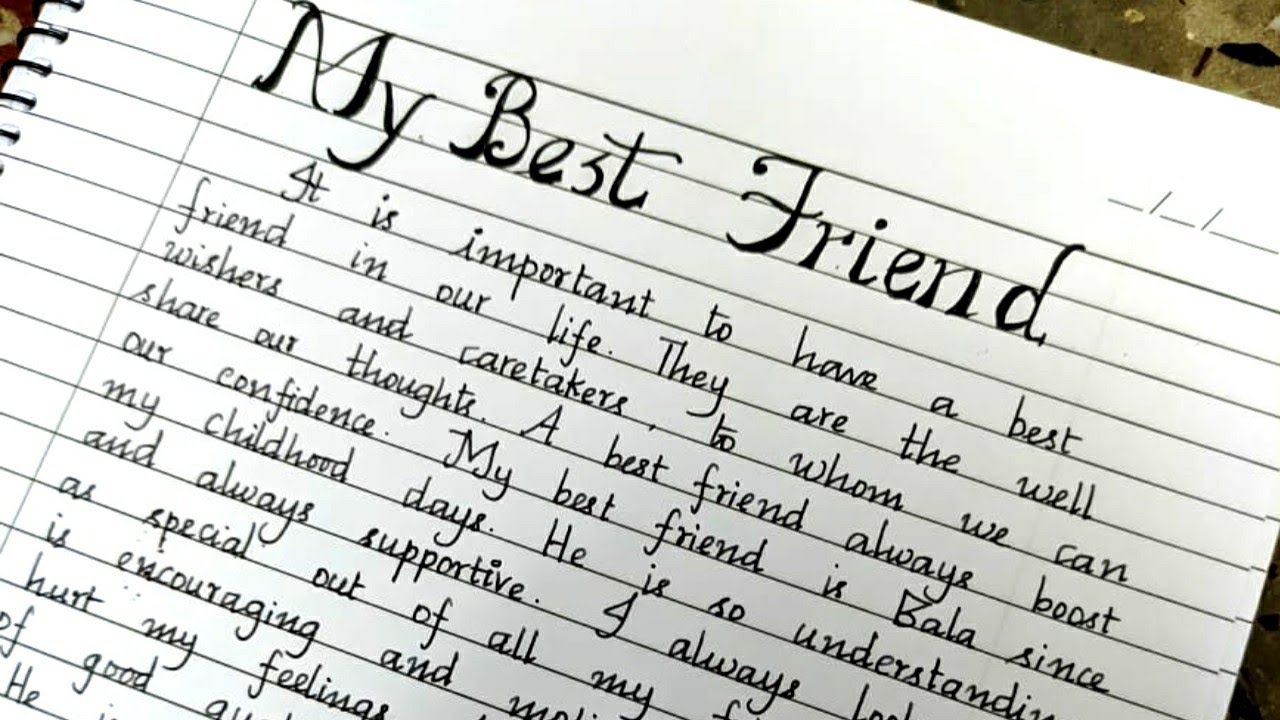 My Best Friend
It is important to have a best
friend in our life. They are the well
wishers and caretakers, to whom we can
share our thoughts. A best friend always boost
our confidence. My best friend is Bala since
my childhood days. He is so understandin
and always supportive. I always
as special out of all my
is encouraging and
hurt my feelings
of good
He